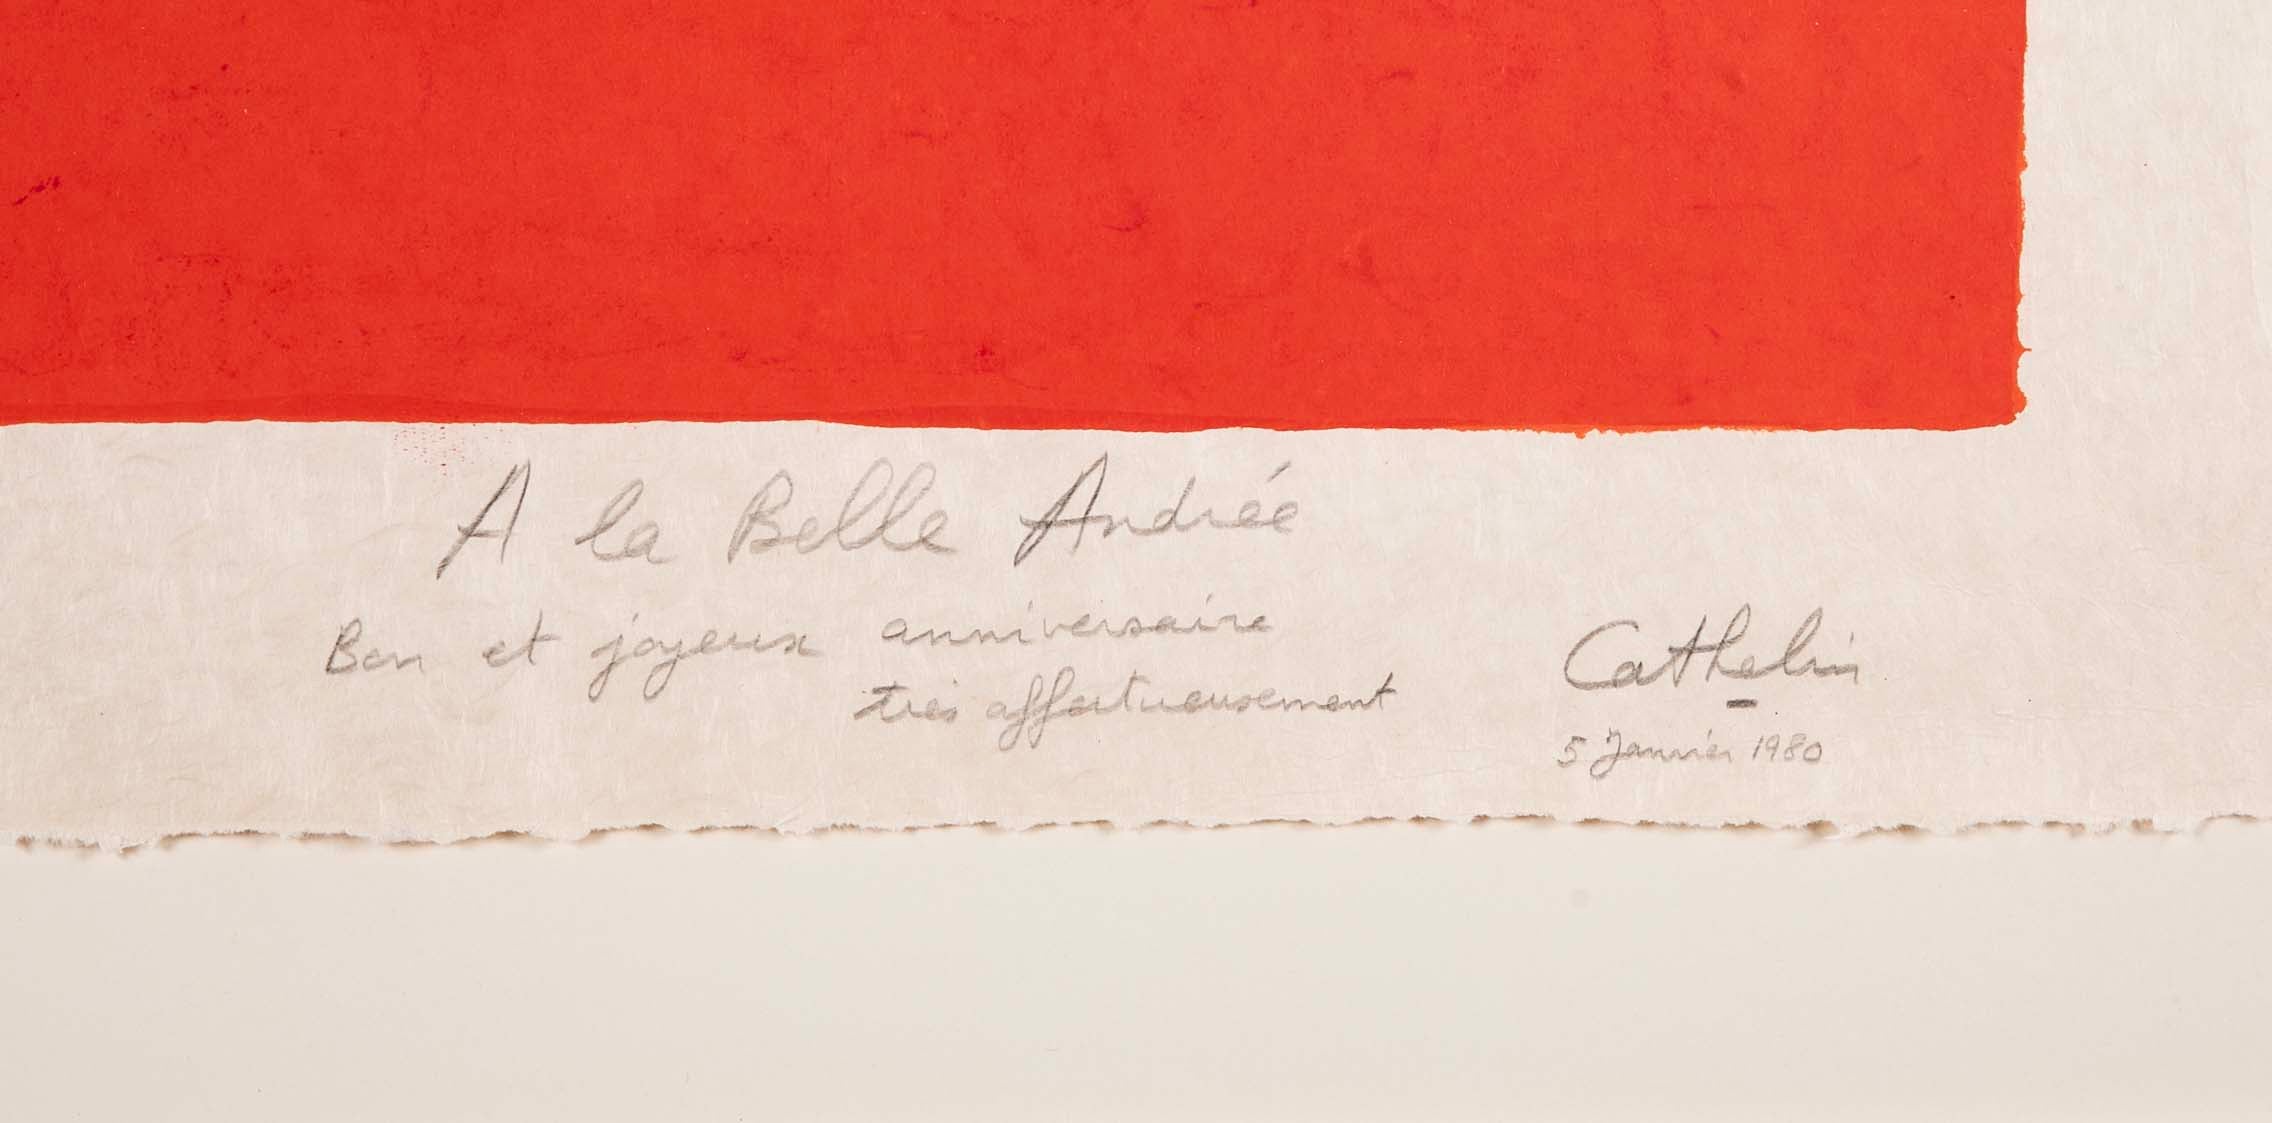 A la Belle Andrée
Bon et joyeux anniversaire
très affectueusement
Cathelin
5 Janvier 1980